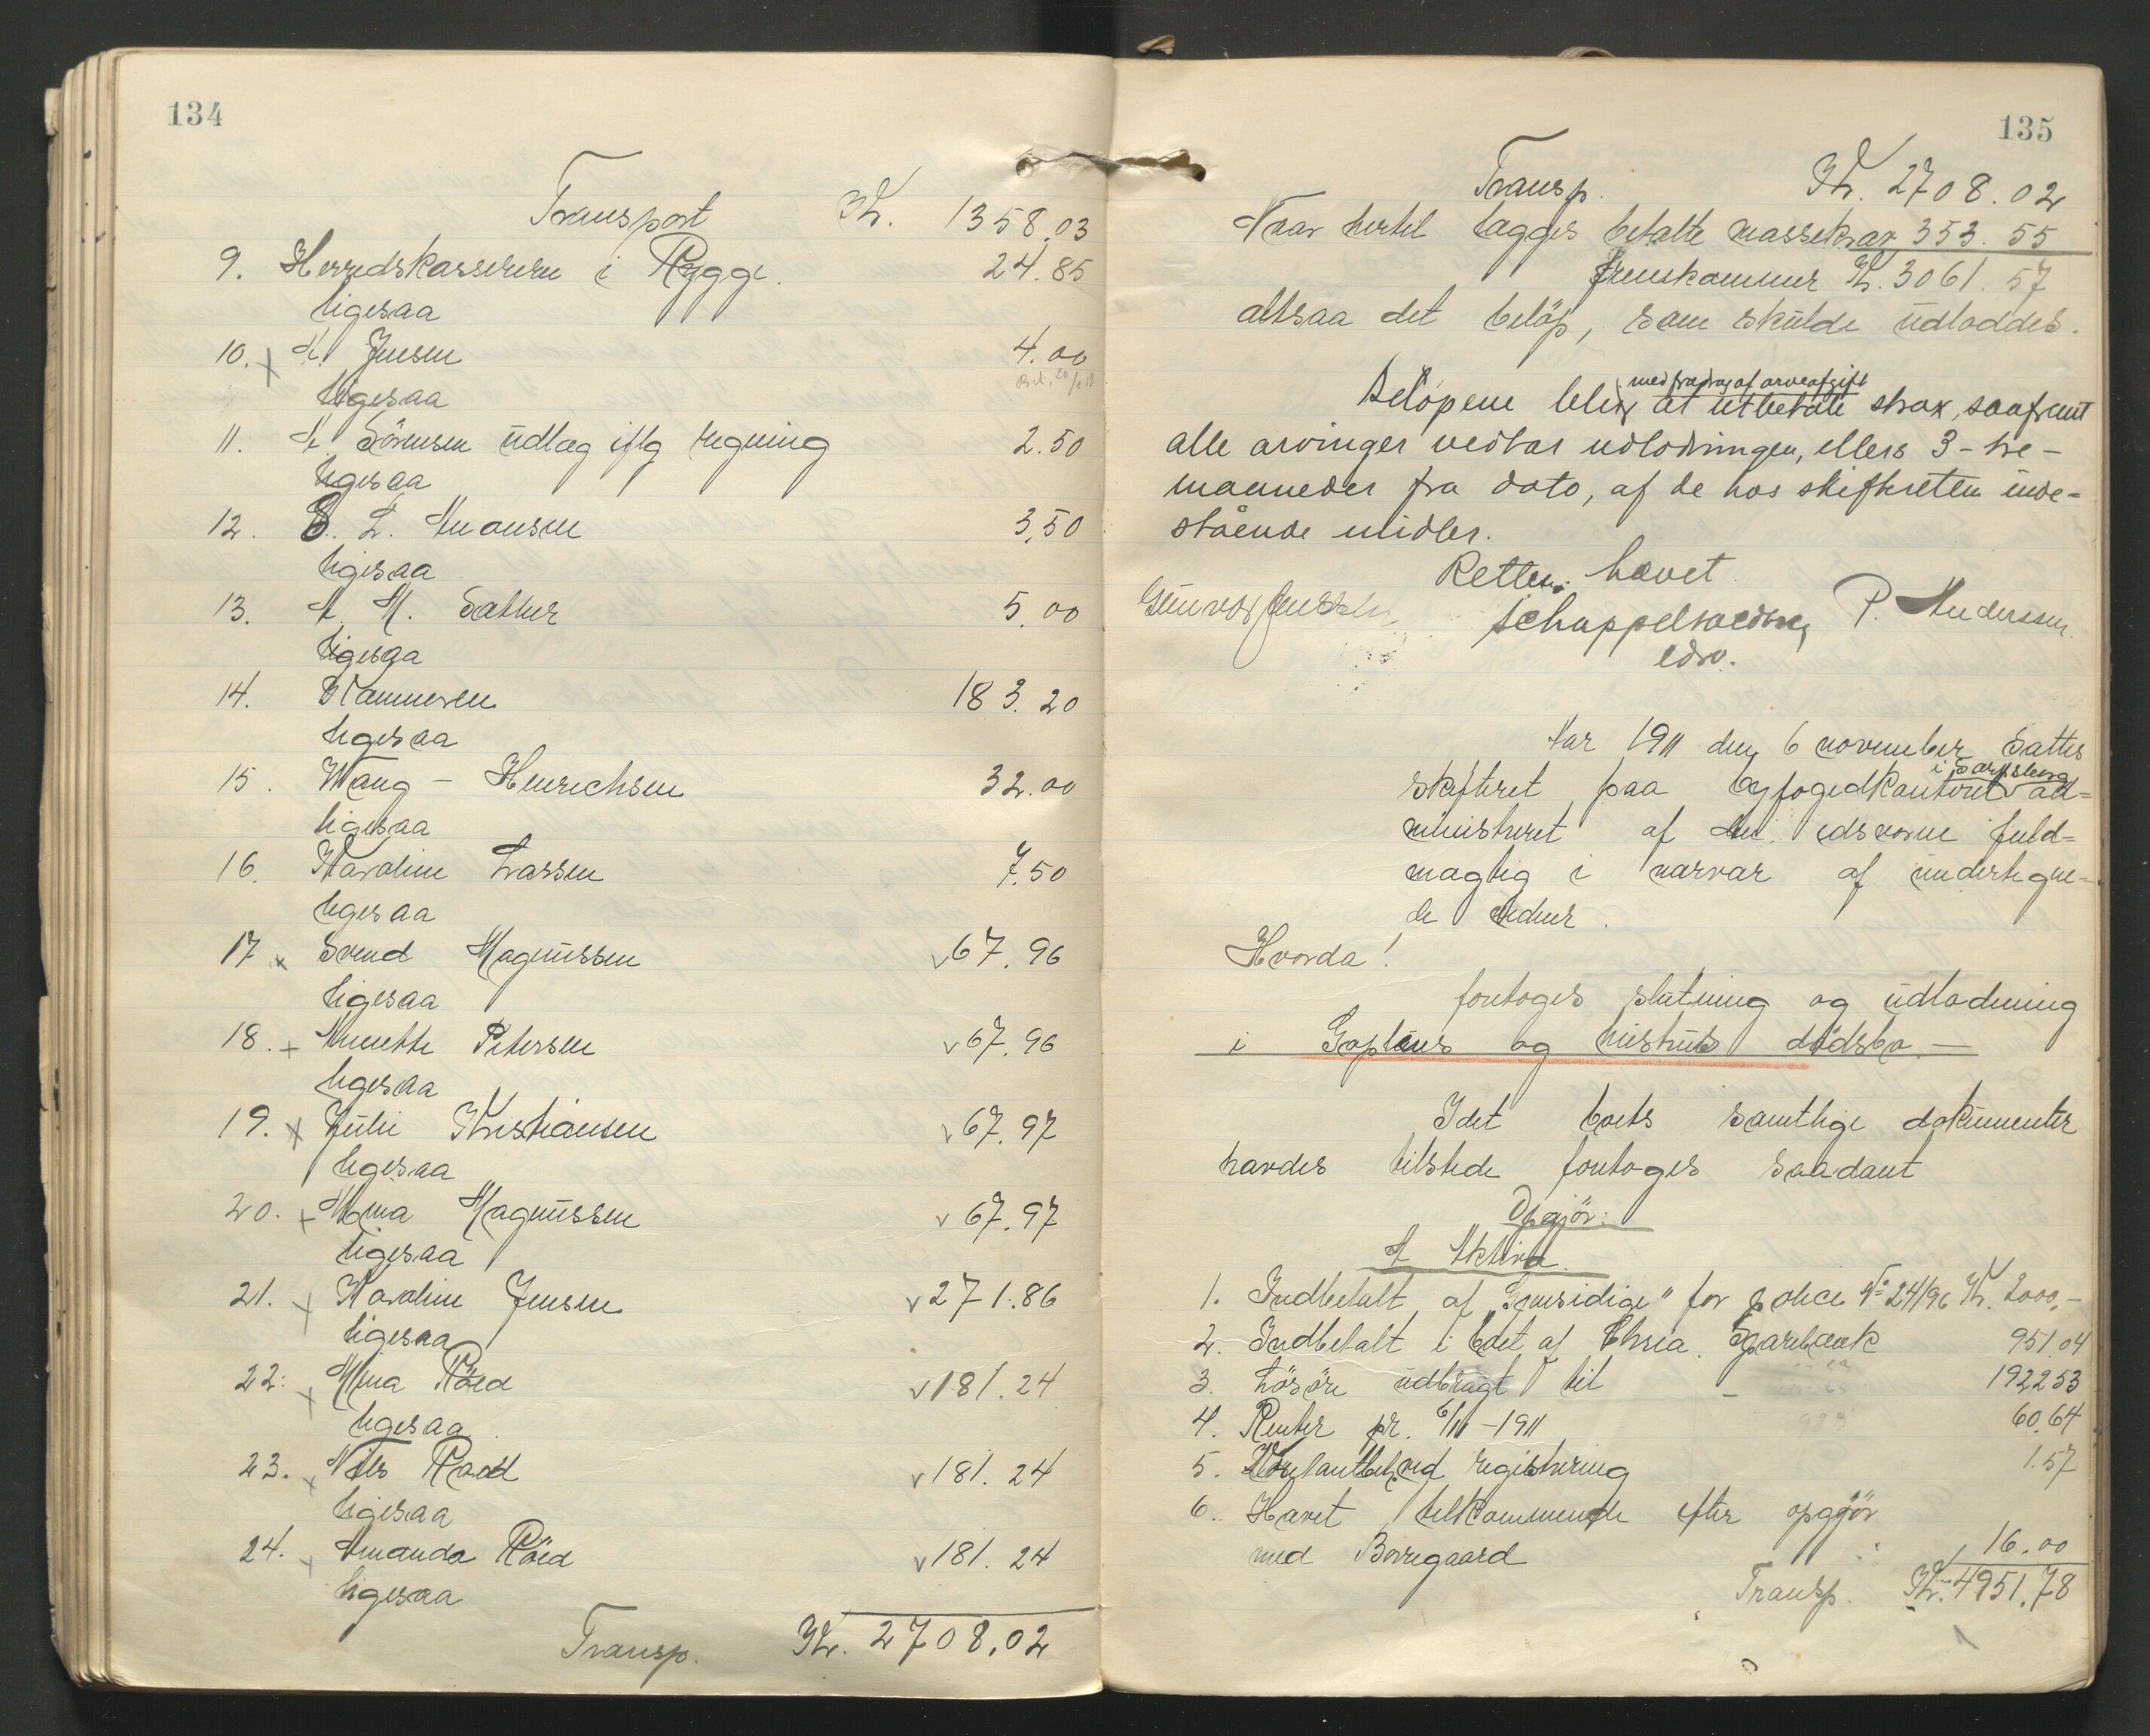 134
Transport Kr. 1358.03
9. Herredskassereren i Rygge. 24.85
ligesaa
10. A. Jensen 4.00
ligesaa
11. A Sörensen udlæg iflg regning 2.50
ligesaa
12. L. Amonsen 3.50
ligesaa
13. A. M. Sæther 5.00
ligesaa
14. Hammeren 183.20
ligesaa
15. Wang - Henrichsen 32.00
ligesaa
16. Karoline Larsen 7.50
ligesaa
17 x Svend Magnussen v 67.96
ligesaa
18. + Annette Petersen v 67.96
ligesaa
19. x Julie Kristiansen v 67.97
ligesaa
20. + Magnussen v 67.97
ligesaa
21. + Karoline Jensen v 271.86
ligesaa
22: + Mina Röed v 181.24
ligesaa
23. x Nils Röed v 181.24
ligesaa
24. + Amanda Röed v 181.24
ligesaa
Transp. Kr. 2708.02
135
Transp. Kr. 2708.02
Naar hertil lægges betalte massekrav 353.55
fremkommer Kr. 3061.57
altsaa det beløp, som skulde udloddes.
med fradrag af arveafgift
Beløpene blir at utbetale strax, saafremt
alle arvinger vedtar udlodningen, ellers 3 - tre -
maaneder fra dato, af de hos skifteretten inde=
stående midler.
Retten hævet.
Gunvor Jenssen P. Anderssen
edsv.
Aar 1911 den 6 november sattes
i Sarpsborg
skifteret paa byfogedkontoret ad=
ministreret af den edsvorne fuld=
mægtig i nærvær af undertegne=
de vidner.
Hvorda!
foretoges slutning og udlodning
i Göpléns og hustrus dødsbo. -
Idet boets samtlige dokumenter
havdes tilstede foretoges saadant
Opgjör:
A Aktiva.
1. Indbetalt af "Gjensidige" for police No 24196 Kr. 2000.-
2. Indbetalt i boet af Chria. Sparebank 951.04
3. Lösöre udbragt til - 1922.53
4. Renter pr. 6/11 - 1911 60.64
5. Kontantbeh. ved registrering 1.57
6. Hævet tilkommende efter opgjör
med Borregaard 16.00
Transp. Kr. 4951.78